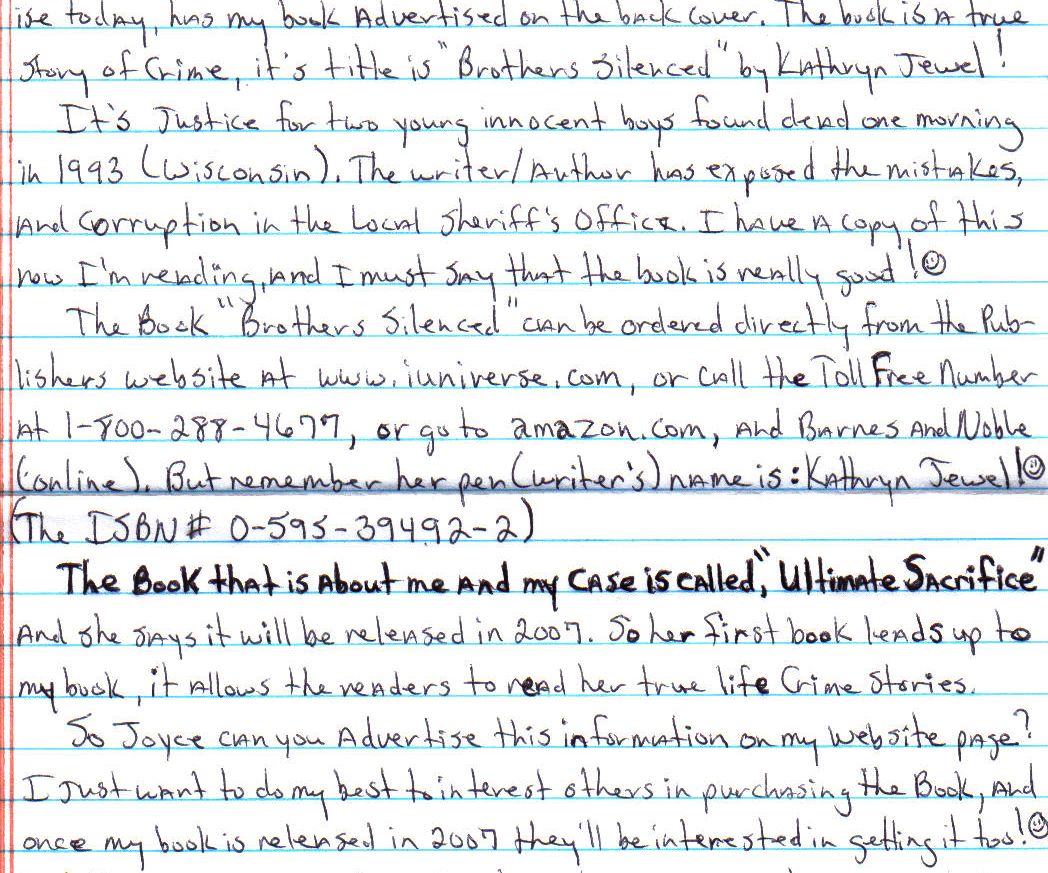 ise today, has my book Advertised on the back cover. The book is A true
story of Crime, it's title is "Brothers Silenced" by Kathryn Jewel!
It's Justice for two young innocent boys found dead one morning
in 1993 (Wisconsin). The writer/Author has exposed the mistakes,
And Corruption in the Local Sheriff's Office. I have A copy of this
now I'm reading, And I must say that the book is really good!☺
The Book "Brothers Silenced" can be ordered directly from the Pub-
lishers website at www.iuniverse.com, or call the Toll Free Number
At 1-800-288-4677, or go to amazon.com, And Barnes And Noble
(online). But remember her pen (writer's) name is: Kathryn Jewel!☺
(The ISBN # 0-595-39492-2)
The Book that is About me And my Case is called, "Ultimate Sacrifice"
And she says it will be released in 2007. So her first book leads up to
my book, it Allows the readers to read her true life Crime Stories.
So Joyce can you Advertise this information on my website page?
I Just want to do my best to interest others in purchasing the Book, And
once my book is released in 2007 they'll be interested in getting it too!☺